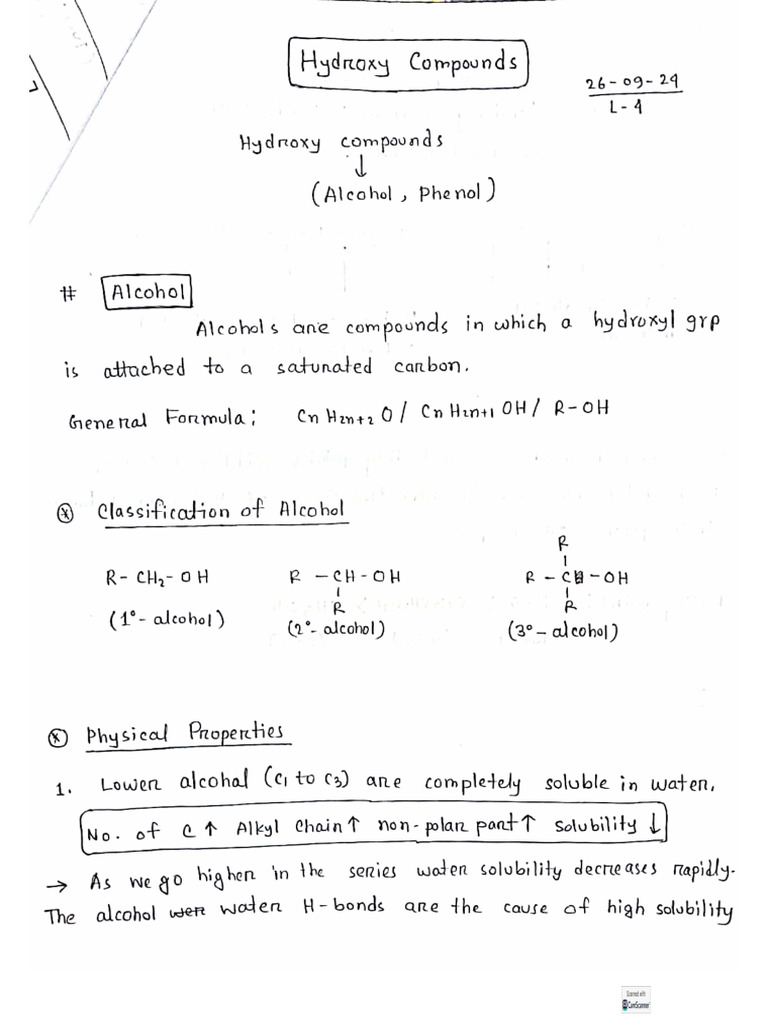 Hydroxy Compounds
26-09-24
L-4
Hydroxy compounds
↓
(Alcohol, Phenol)
# Alcohol
Alcohols are compounds in which a hydroxyl grp
is attached to a saturated carbon.
General Formula: CnH2n+2O / CnH2n+1OH / R-OH
⊗ Classification of Alcohol
R-CH2-OH R-CH-OH R-C-OH
R R R
(1°-alcohol) (2°-alcohol) (3°-alcohol)
⊗ Physical Properties
1. Lower alcohal (C1 to C3) are completely soluble in water.
No. of C↑ Alkyl Chain↑ non-polar part↑ solubility↓
→ As we go higher in the series water solubility decreases rapidly.
The alcohol water H-bonds are the cause of high solubility
Scanned with
CamScanner